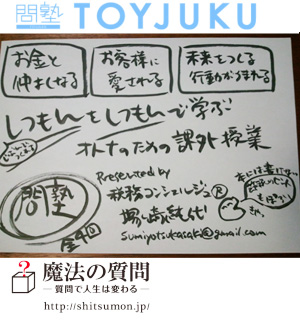 問塾 TOYJUKU
お金と
仲よくなる
お客様に
愛される
未来をつくる
行動がうまれる
しつもんをしつもんで学ぶ
オトナのための課外授業
問塾
全4回
Presented by
税務コンシェルジュ®
sumiyotsukasaki@gmail.com
魔法の質問
― 質問で人生は変わる ―
http://shitsumon.jp/